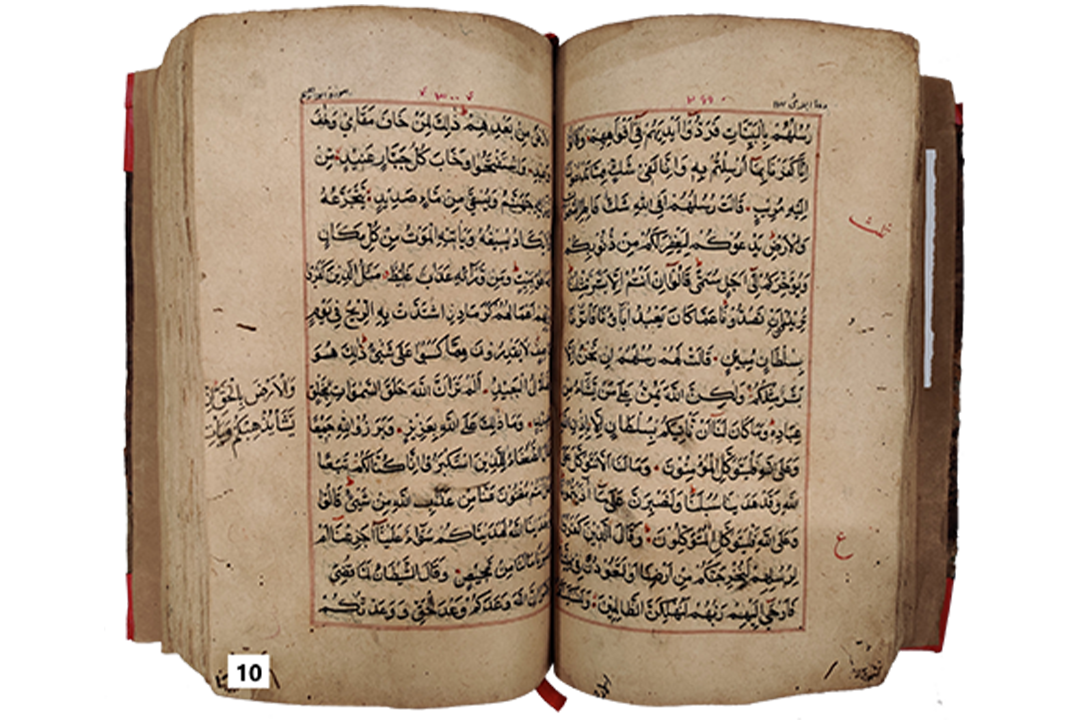 ٢٩٩
رُسُلُهُمْ بِالْبَيِّنَاتِ فَرَدُّوا اَيْدِيَهُمْ فِي اَفْوَاهِهِمْ وَقَالُوا
اِنَّا كَفَرْنَا بِمَا اُرْسِلْتُمْ بِهِ وَاِنَّا لَفِي شَكٍّ مِمَّا تَدْعُونَنَا
اِلَيْهِ مُرِيبٍ قَالَتْ رُسُلُهُمْ اَفِي اللهِ شَكٌّ فَاطِرِ
وَالْاَرْضِ يَدْعُوكُمْ لِيَغْفِرَ لَكُمْ مِنْ ذُنُوبِكُمْ
وَيُؤَخِّرَكُمْ اِلَى اَجَلٍ مُسَمًّى قَالُوا اِنْ اَنْتُمْ اِلَّا بَشَرٌ مِثْلُنَا
تُرِيدُونَ اَنْ تَصُدُّونَا عَمَّا كَانَ يَعْبُدُ اٰبَاؤُنَا فَأْتُونَا
بِسُلْطَانٍ مُبِينٍ قَالَتْ لَهُمْ رُسُلُهُمْ اِنْ نَحْنُ اِلَّا
بَشَرٌ مِثْلُكُمْ وَلٰكِنَّ اللهَ يَمُنُّ عَلَى مَنْ يَشَاءُ مِنْ
عِبَادِهِ وَمَا كَانَ لَنَا اَنْ نَأْتِيَكُمْ بِسُلْطَانٍ اِلَّا بِاِذْنِ اللهِ
وَعَلَى اللهِ فَلْيَتَوَكَّلِ الْمُؤْمِنُونَ وَمَا لَنَا اَلَّا نَتَوَكَّلَ عَلَى
اللهِ وَقَدْ هَدٰىنَا سُبُلَنَا وَلَنَصْبِرَنَّ عَلَى مَا اٰذَيْتُمُونَا
وَعَلَى اللهِ فَلْيَتَوَكَّلِ الْمُتَوَكِّلُونَ وَقَالَ الَّذِينَ كَفَرُوا
لِرُسُلِهِمْ لَنُخْرِجَنَّكُمْ مِنْ اَرْضِنَا اَوْ لَتَعُودُنَّ فِي
فَاَوْحٰى اِلَيْهِمْ رَبُّهُمْ لَنُهْلِكَنَّ الظَّالِمِينَ
ع
٣٠٠
الْاَرْضَ مِنْ بَعْدِهِمْ ذٰلِكَ لِمَنْ خَافَ مَقَامِي وَخَافَ
وَعِيدِ وَاسْتَفْتَحُوا وَخَابَ كُلُّ جَبَّارٍ عَنِيدٍ مِنْ
جَهَنَّمُ وَيُسْقٰى مِنْ مَاءٍ صَدِيدٍ يَتَجَرَّعُهُ
يَكَادُ يُسِيغُهُ وَيَأْتِيهِ الْمَوْتُ مِنْ كُلِّ مَكَانٍ
هُوَ بِمَيِّتٍ وَمِنْ وَرَائِهِ عَذَابٌ غَلِيظٌ مَثَلُ الَّذِينَ كَفَرُوا
بِرَبِّهِمْ اَعْمَالُهُمْ كَرَمَادٍ اشْتَدَّتْ بِهِ الرِّيحُ فِي يَوْمٍ
عَاصِفٍ لَا يَقْدِرُونَ مِمَّا كَسَبُوا عَلَى شَيْءٍ ذٰلِكَ هُوَ
الضَّلَالُ الْبَعِيدُ اَلَمْ تَرَ اَنَّ اللهَ خَلَقَ السَّمٰوَاتِ
جَدِيدٍ وَمَا ذٰلِكَ عَلَى اللهِ بِعَزِيزٍ وَبَرَزُوا لِلّٰهِ جَمِيعًا
الضُّعَفَاءُ لِلَّذِينَ اسْتَكْبَرُوا اِنَّا كُنَّا لَكُمْ تَبَعًا
اَنْتُمْ مُغْنُونَ عَنَّا مِنْ عَذَابِ اللهِ مِنْ شَيْءٍ قَالُوا
هَدٰىنَا اللهُ لَهَدَيْنَاكُمْ سَوَاءٌ عَلَيْنَا اَجَزِعْنَا اَمْ
صَبَرْنَا مَا لَنَا مِنْ مَحِيصٍ وَقَالَ الشَّيْطَانُ لَمَّا قُضِيَ
اللهَ وَعَدَكُمْ وَعْدَ الْحَقِّ وَوَعَدْتُكُمْ
وَالْاَرْضَ بِالْحَقِّ اِنْ
يَشَأْ يُذْهِبْكُمْ وَيَأْتِ
10